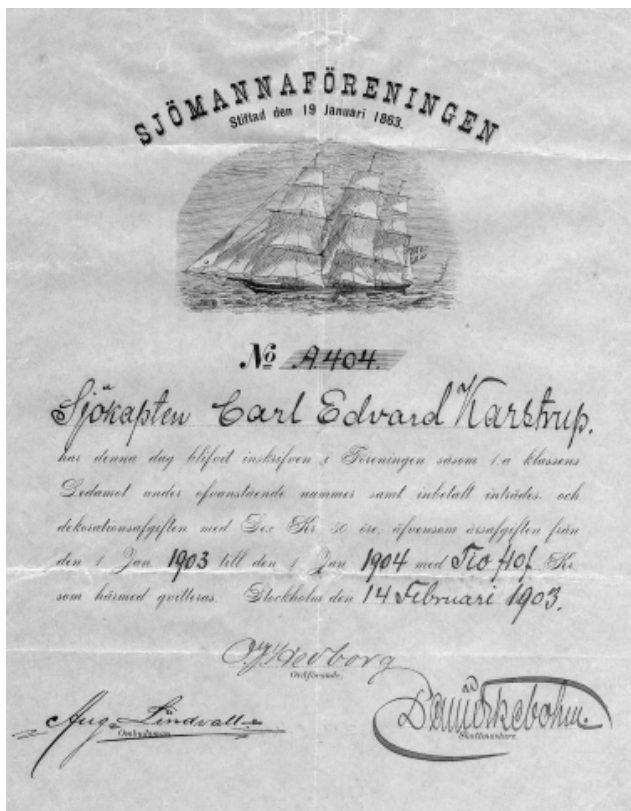 SJÖMANNAFÖRENINGEN
Stiftad den 19 Januari 1863.
No A.404.
Sjökapten Carl Edvard Karstrup.
har denna dag blifvit inskrifven i Föreningen såsom 1.a klassens
Ledamot under ofvanstående nummer samt inbetalt inträdes- och
dekorationsafgiften med Sex Kr. 50 öre, äfvensom årsafgiften från
den 1 Jan 1903 till den 1 Jan 1904 med Tio Kr.
som härmed qvitteras. Stockholm den 14 Februari 1903.
Hedborg
Ordförande.
Aug. Lindvall
Ombudsman.
Skattmästare.